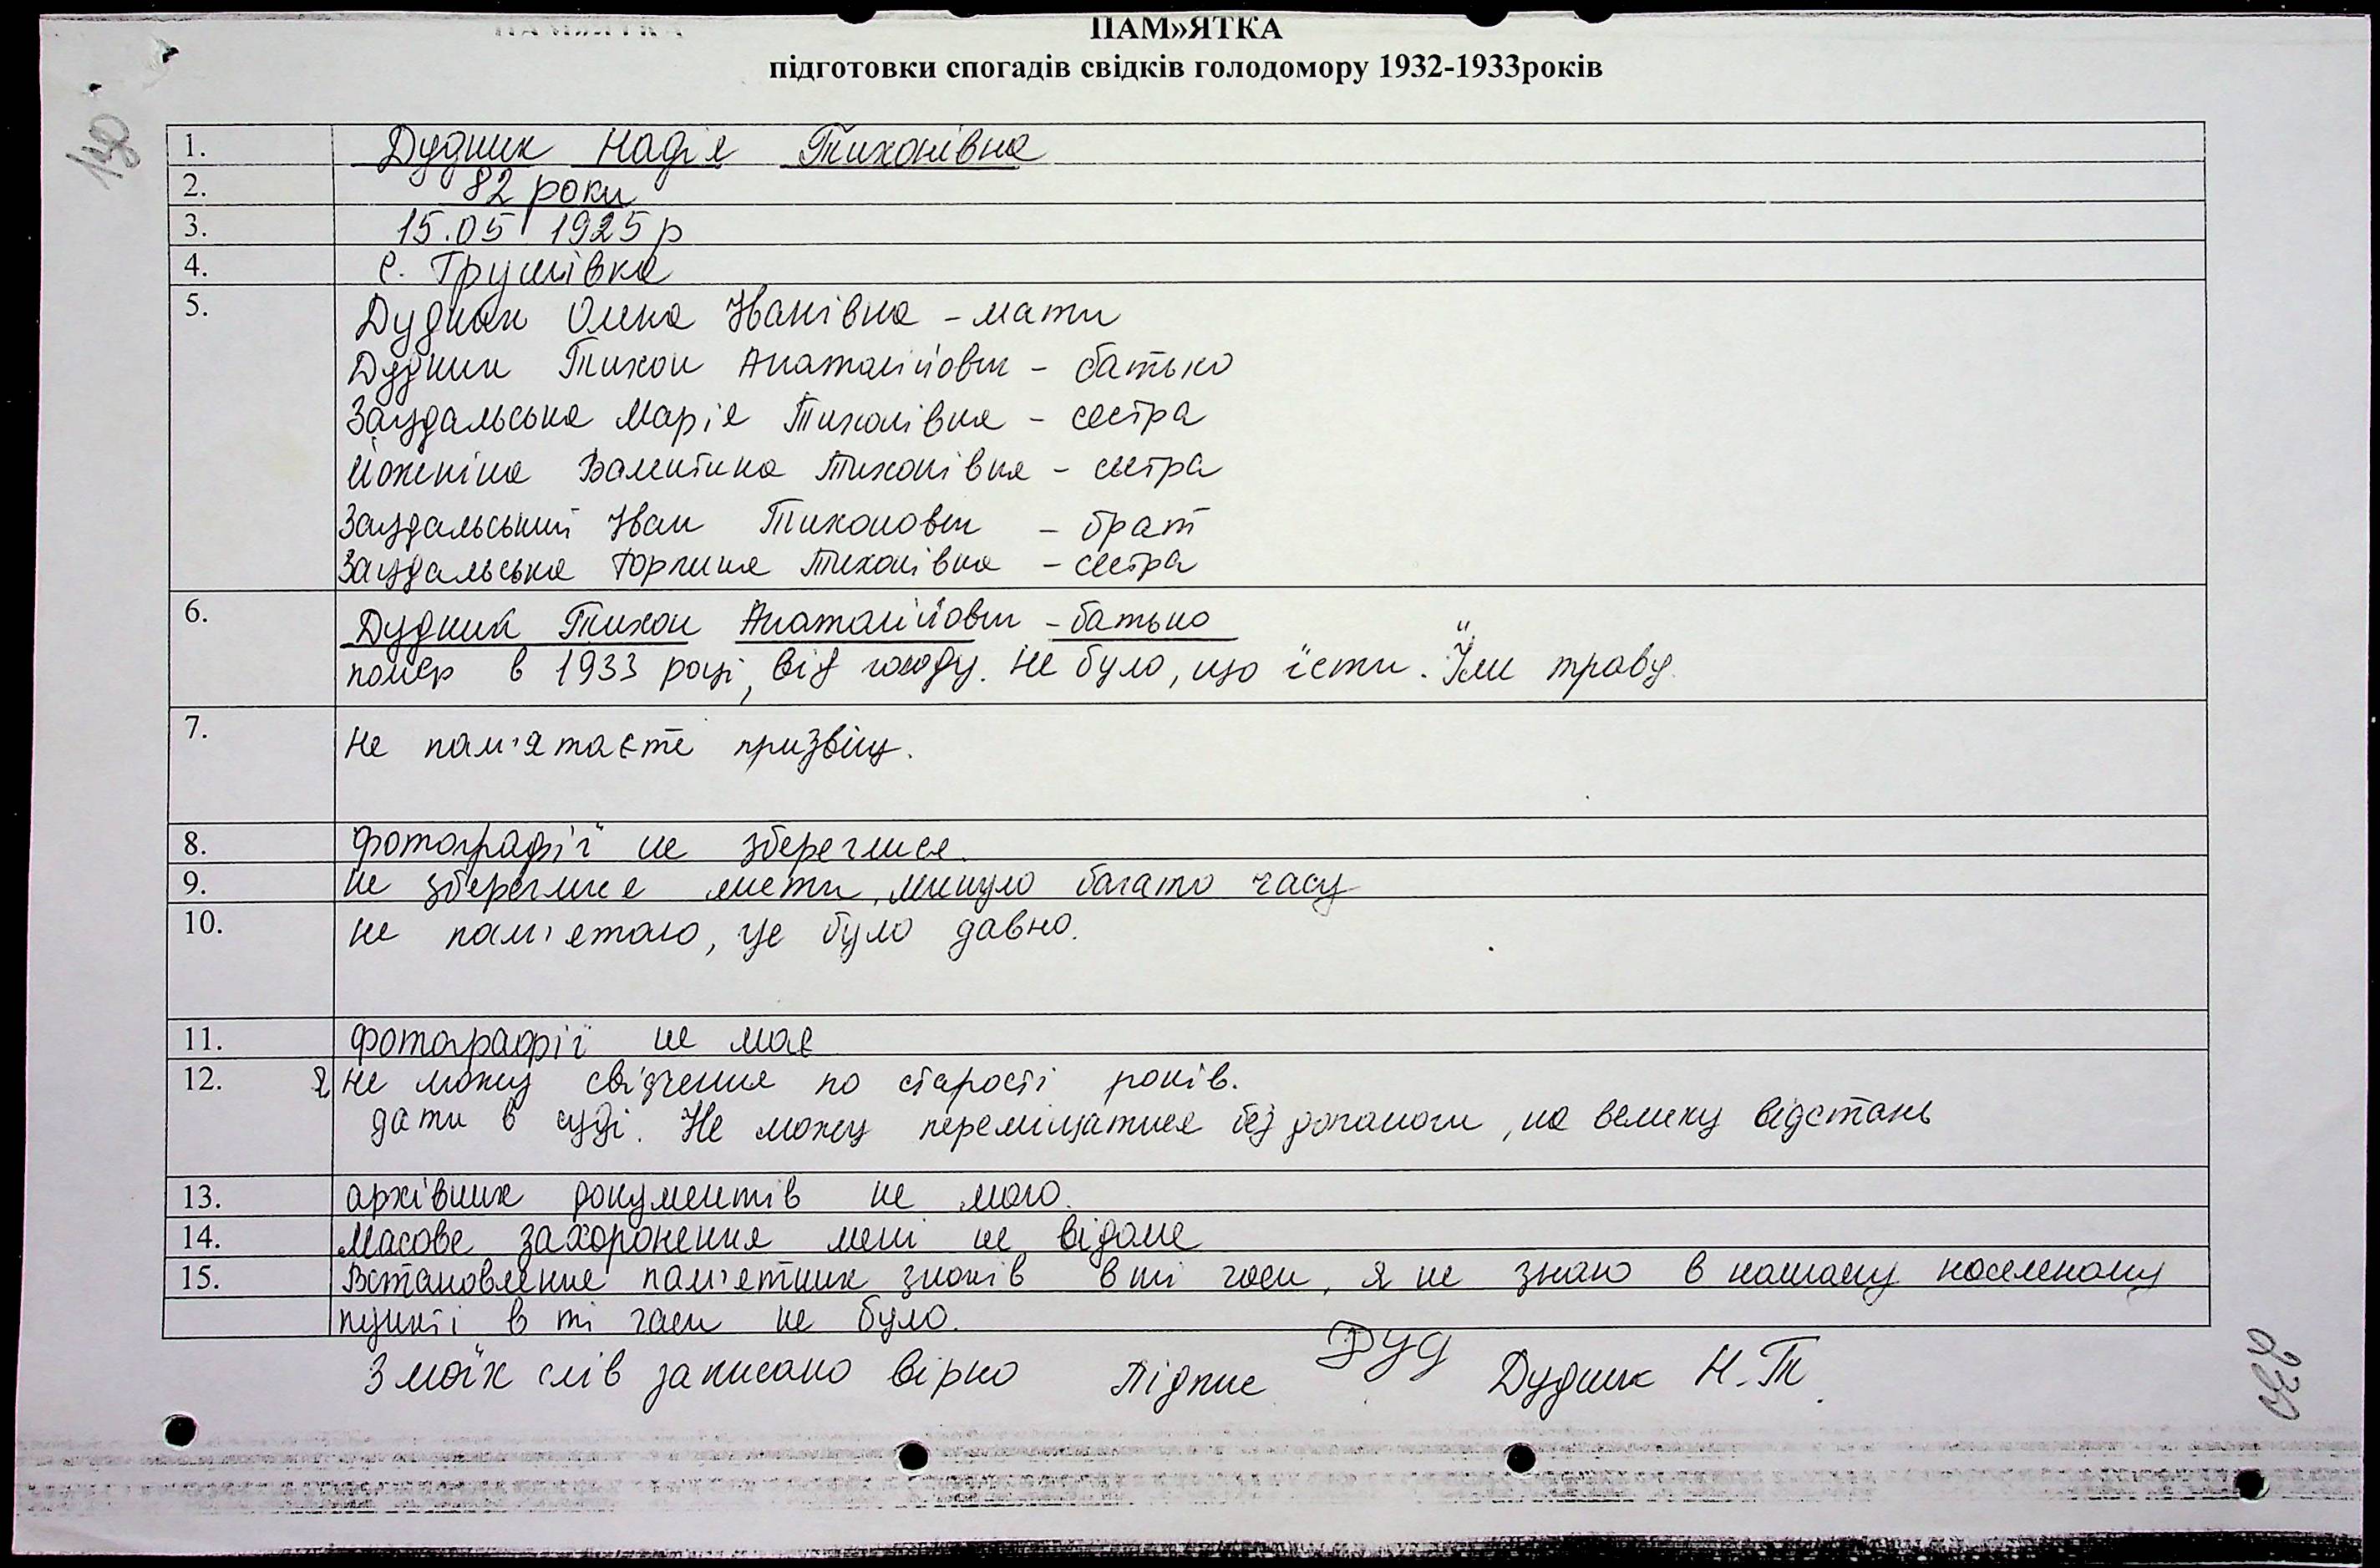 ПАМ»ЯТКА
підготовки спогадів свідків голодомору 1932-1933років
1. Дудник Надія Тихонівна
2. 82 роки
3. 15.05 1925 р
4. с. Трушівка
5. Дудник Олена Іванівна - мати
Дудник Тихон Анатолійович - батько
Заудальська Марія Тихонівна - сестра
Валентина Тихонівна - сестра
Заудальський Іван Тихонович - брат
Заудальська Горпина Тихонівна - сестра
6. Дудник Тихон Анатолійович - батько
помер в 1933 році, від голоду. Не було, що їсти. Їли траву.
7. Не пам'ятаєте призвіщ.
8. Фотографії не збереглися.
9. Не збереглися листи, минуло багато часу
10. Не пам'ятаю, це було давно.
11. Фотографії не має
12. Я не можу свідчення по старості років.
дати в суді. Не можу переміщатися без допомоги, на велику відстань
13. Архівних документів не маю.
14. Масове захоронення мені не відоме
15. Встановлення пам'ятних знаків в ті часи, я не знаю в нашому населеному
пункті в ті часи не було.
З моїх слів записано вірно Підпис Дуд Дудник Н.Т.